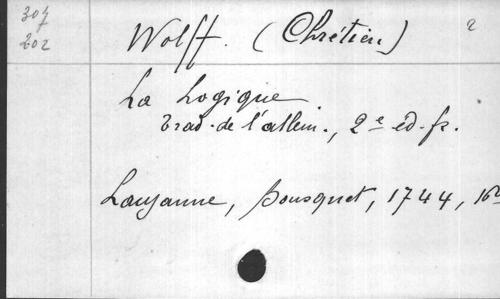 Wolff. (Chrétien)
202
La Logique
trad. de l'allem., 2e éd. fr.
Lausanne, Bousquet, 1744, 16